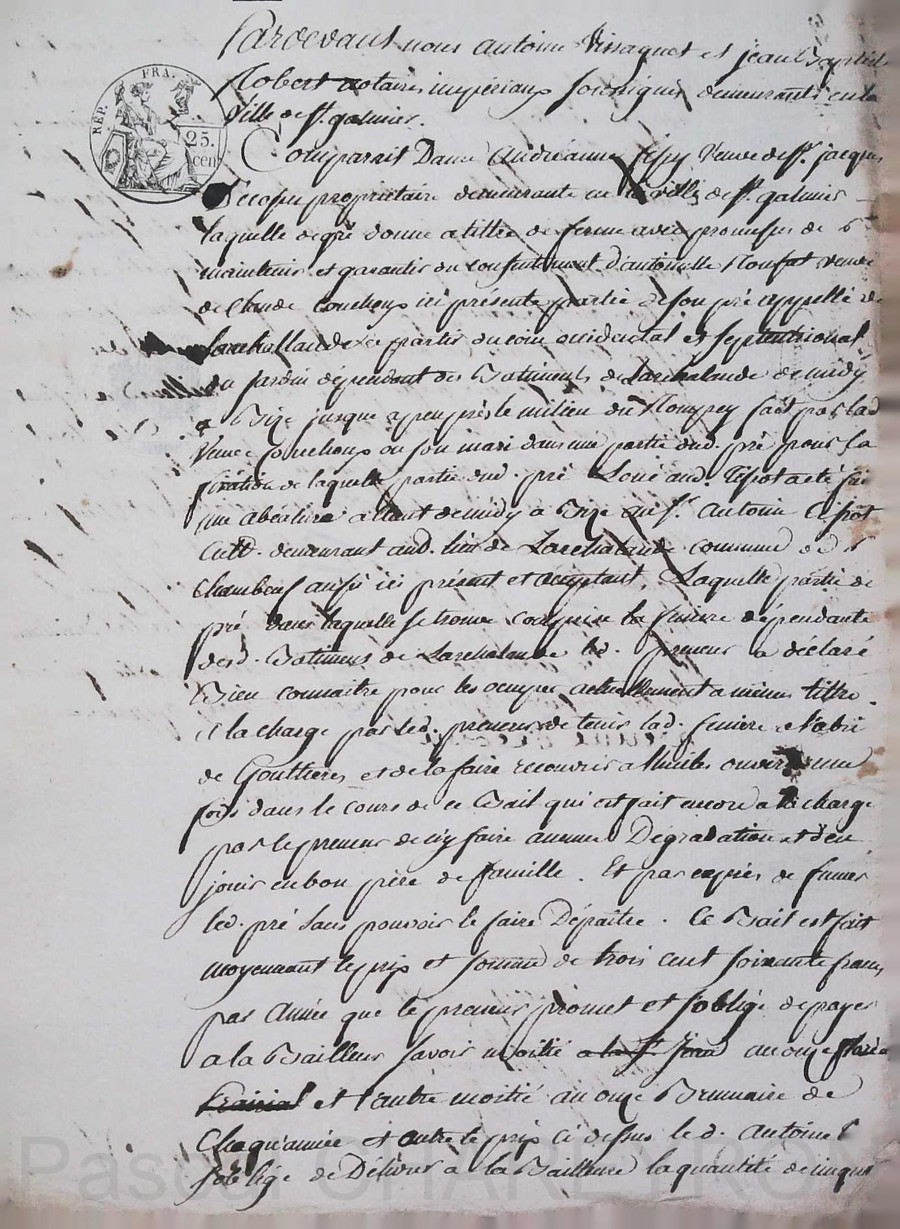 Pardevant nous antoine Vissaguet et jean Baptist
Robert notaires impériaux soussignés demeurants en la
Ville de St. galmier.
REP. FRA.
25.
cen
Comparait Dame Andréanne Veuve de Sr. jacques
propriétaire demeurante en la ville de St. galmier
laquelle de gré donne a tittre de ferme avec promesse de
maintenir et garantir du consentement d'antoinette veuve
de Claude Couchoux ici présente partie de son pré appellé de
Larchallande a partir du coin occidental et septentrional
du jardin dépendant des Batiments de Larchalande de midy
a Bize jusque a peu près le milieu du fait par lad
Veuve Couchoux ou son mari dans une partie dud. pré pour la
de laquelle partie dud. pré
une a Bize au Sr. Antoine
Cult. demeurant aud. lieu de Larchalande commune de
Chambeuf aussi ici présent et acceptant, Laquelle partie de
pré dans laquelle se trouve comprise la dépendante
desd. Batimens de Larchalande led. preneur a déclaré
Bien connaitre pour les ocuper actuellement a même tittre
a la charge par led. preneur de tenir lad. a l'abri
de Gouttières et de la faire recouvrir a thuiles une
fois dans le cours de ce Bail qui est fait encore a la charge
par le preneur de n'y faire aucune Dégradation et d'en
jouir en bon père de famille. Et par exprès de fumer
led. pré sans pouvoir le faire Dépaitre. Ce Bail est fait
moyennant le prix et somme de trois cent soixante francs
par Année que le preneur promet et s'oblige de payer
a la Bailleur savoir moitié a la St. au onze
et l'autre moitié au onze Brumaire de
Chaqu'année et outre le prix ci dessus le d. Antoine
s'oblige de Délivrer a la Bailleure la quantité de cinqu
Pascal CHAREYRON